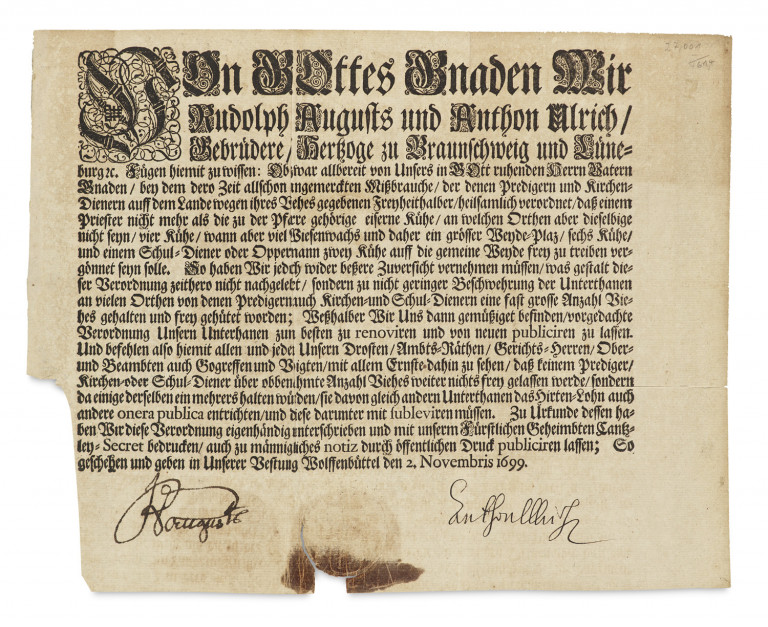 VOn GOttes Gnaden Wir
Rudolph Augusts und Anthon Ulrich /
Gebrüdere / Hertzoge zu Braunschweig und Lüne-
burg ꝛc. Fügen hiemit zu wissen: Obzwar allbereit von Unsers in GOtt ruhenden Herrn Vatern
Gnaden / bey dem dero Zeit allschon ungemerckten Mißbrauche / der denen Predigern und Kirchen-
Dienern auff dem Lande wegen ihres Vehes gegebenen Freyheit halber / heilsamlich verordnet / daß einem
Priester nicht mehr als die zu der Pfarre gehörige eiserne Kühe / an welchen Orthen aber dieselbige
nicht seyn / vier Kühe / wann aber viel Wiesenwachs und daher ein grösser Weyde-Plaz / sechs Kühe /
und einem Schul-Diener oder Oppermann zwey Kühe auff die gemeine Weyde frey zu treiben ver-
gönnet seyn solle. So haben Wir jedch wider beßere Zuversicht vernehmen müssen / was gestalt die-
ser Verordnung zeithero nicht nachgelebt / sondern zu nicht geringer Beschwehrung der Unterthanen
an vielen Orthen von denen Predigern auch Kirchen- und Schul-Dienern eine fast grosse Anzahl Vie-
hes gehalten und frey gehütet worden; Weßhalber Wir Uns dann gemüßiget befinden / vorgedachte
Verordnung Unsern Unterhanen zum besten zu renoviren und von neuen publiciren zu lassen.
Und befehlen also hiemit allen und jeden Unsern Drosten / Ambts-Räthen / Gerichts-Herren / Ober-
und Beambten auch Gogreffen und Vögten / mit allem Ernste dahin zu sehen / daß keinem Prediger /
Kirchen- oder Schul-Diener über obbenahmte Anzahl Viehes weiter nichts frey gelassen werde / sondern
da einige derselben ein mehrers halten würden / sie davon gleich andern Unterthanen das Hirten-Lohn auch
andere onera publica entrichten / und diese darunter mit subleviren müssen. Zu Urkunde dessen ha-
ben Wir diese Verordnung eigenhändig unterschrieben und mit unserm Fürstlichen Geheimbten Cantz-
ley-Secret bedrucken / auch zu männigliches notiz durch öffentlichen Druck publiciren lassen; So
geschehen und geben in Unserer Vestung Wolffenbüttel den 2. Novembris 1699.
RAugusts Anthon Ulrich